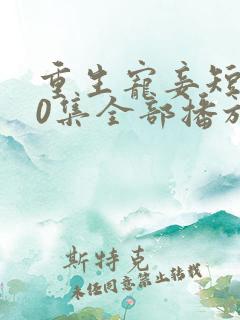 重生宠妾短
0集全部播放
斯特克
未经同意禁止转载